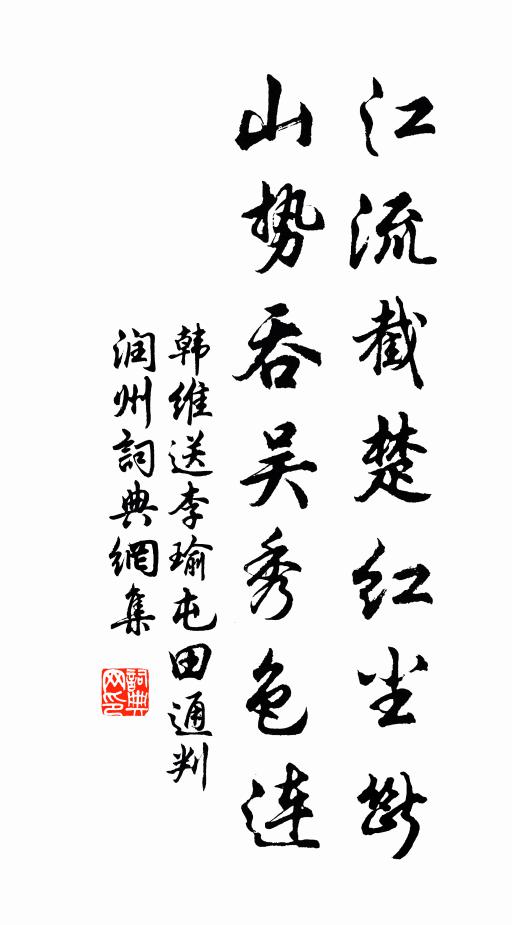 江流截楚红尘断
山势吞吴秀色连
韩维送李瑜屯田通判
润州詞典網集
詞典网印